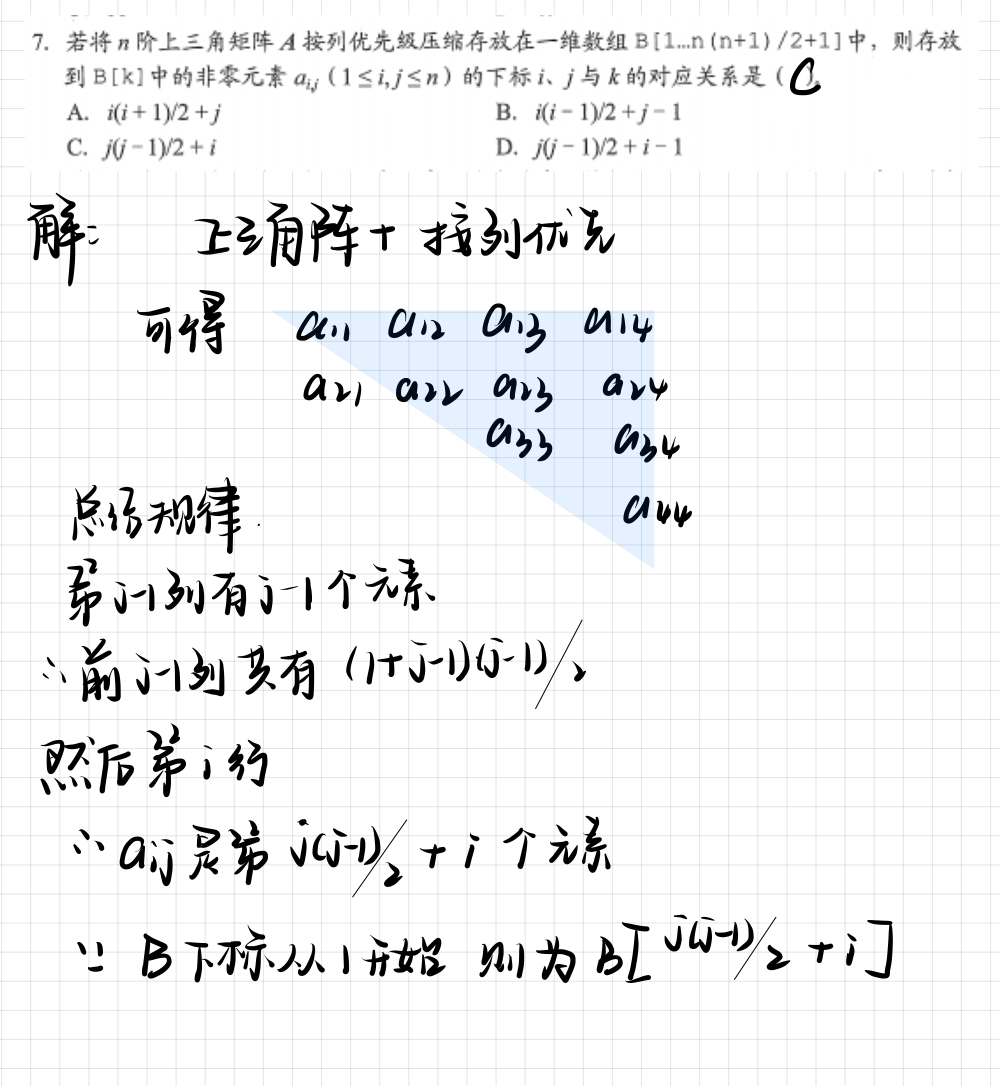 7. 若将 n 阶上三角矩阵 A 按列优先级压缩存放在一维数组 B[1…n(n+1)/2+1]中，则存放
到 B[k]中的非零元素 aᵢ,ⱼ（1≤i,j≤n）的下标 i、j 与 k 的对应关系是（ C ）
A. i(i+1)/2+j B. i(i-1)/2+j-1
C. j(j-1)/2+i D. j(j-1)/2+i-1
解： 上三角阵+ 按列优先
可得 a11 a12 a13 a14
a21 a22 a23 a24
a33 a34
a44
总结规律.
第j-1列有j-1个元素
∴前j-1列共有 (1+j-1)(j-1)/2
然后第i行
∴aij是第 j(j-1)/2 + i 个元素
∵ B下标从1开始 则为B[j(j-1)/2 + i]